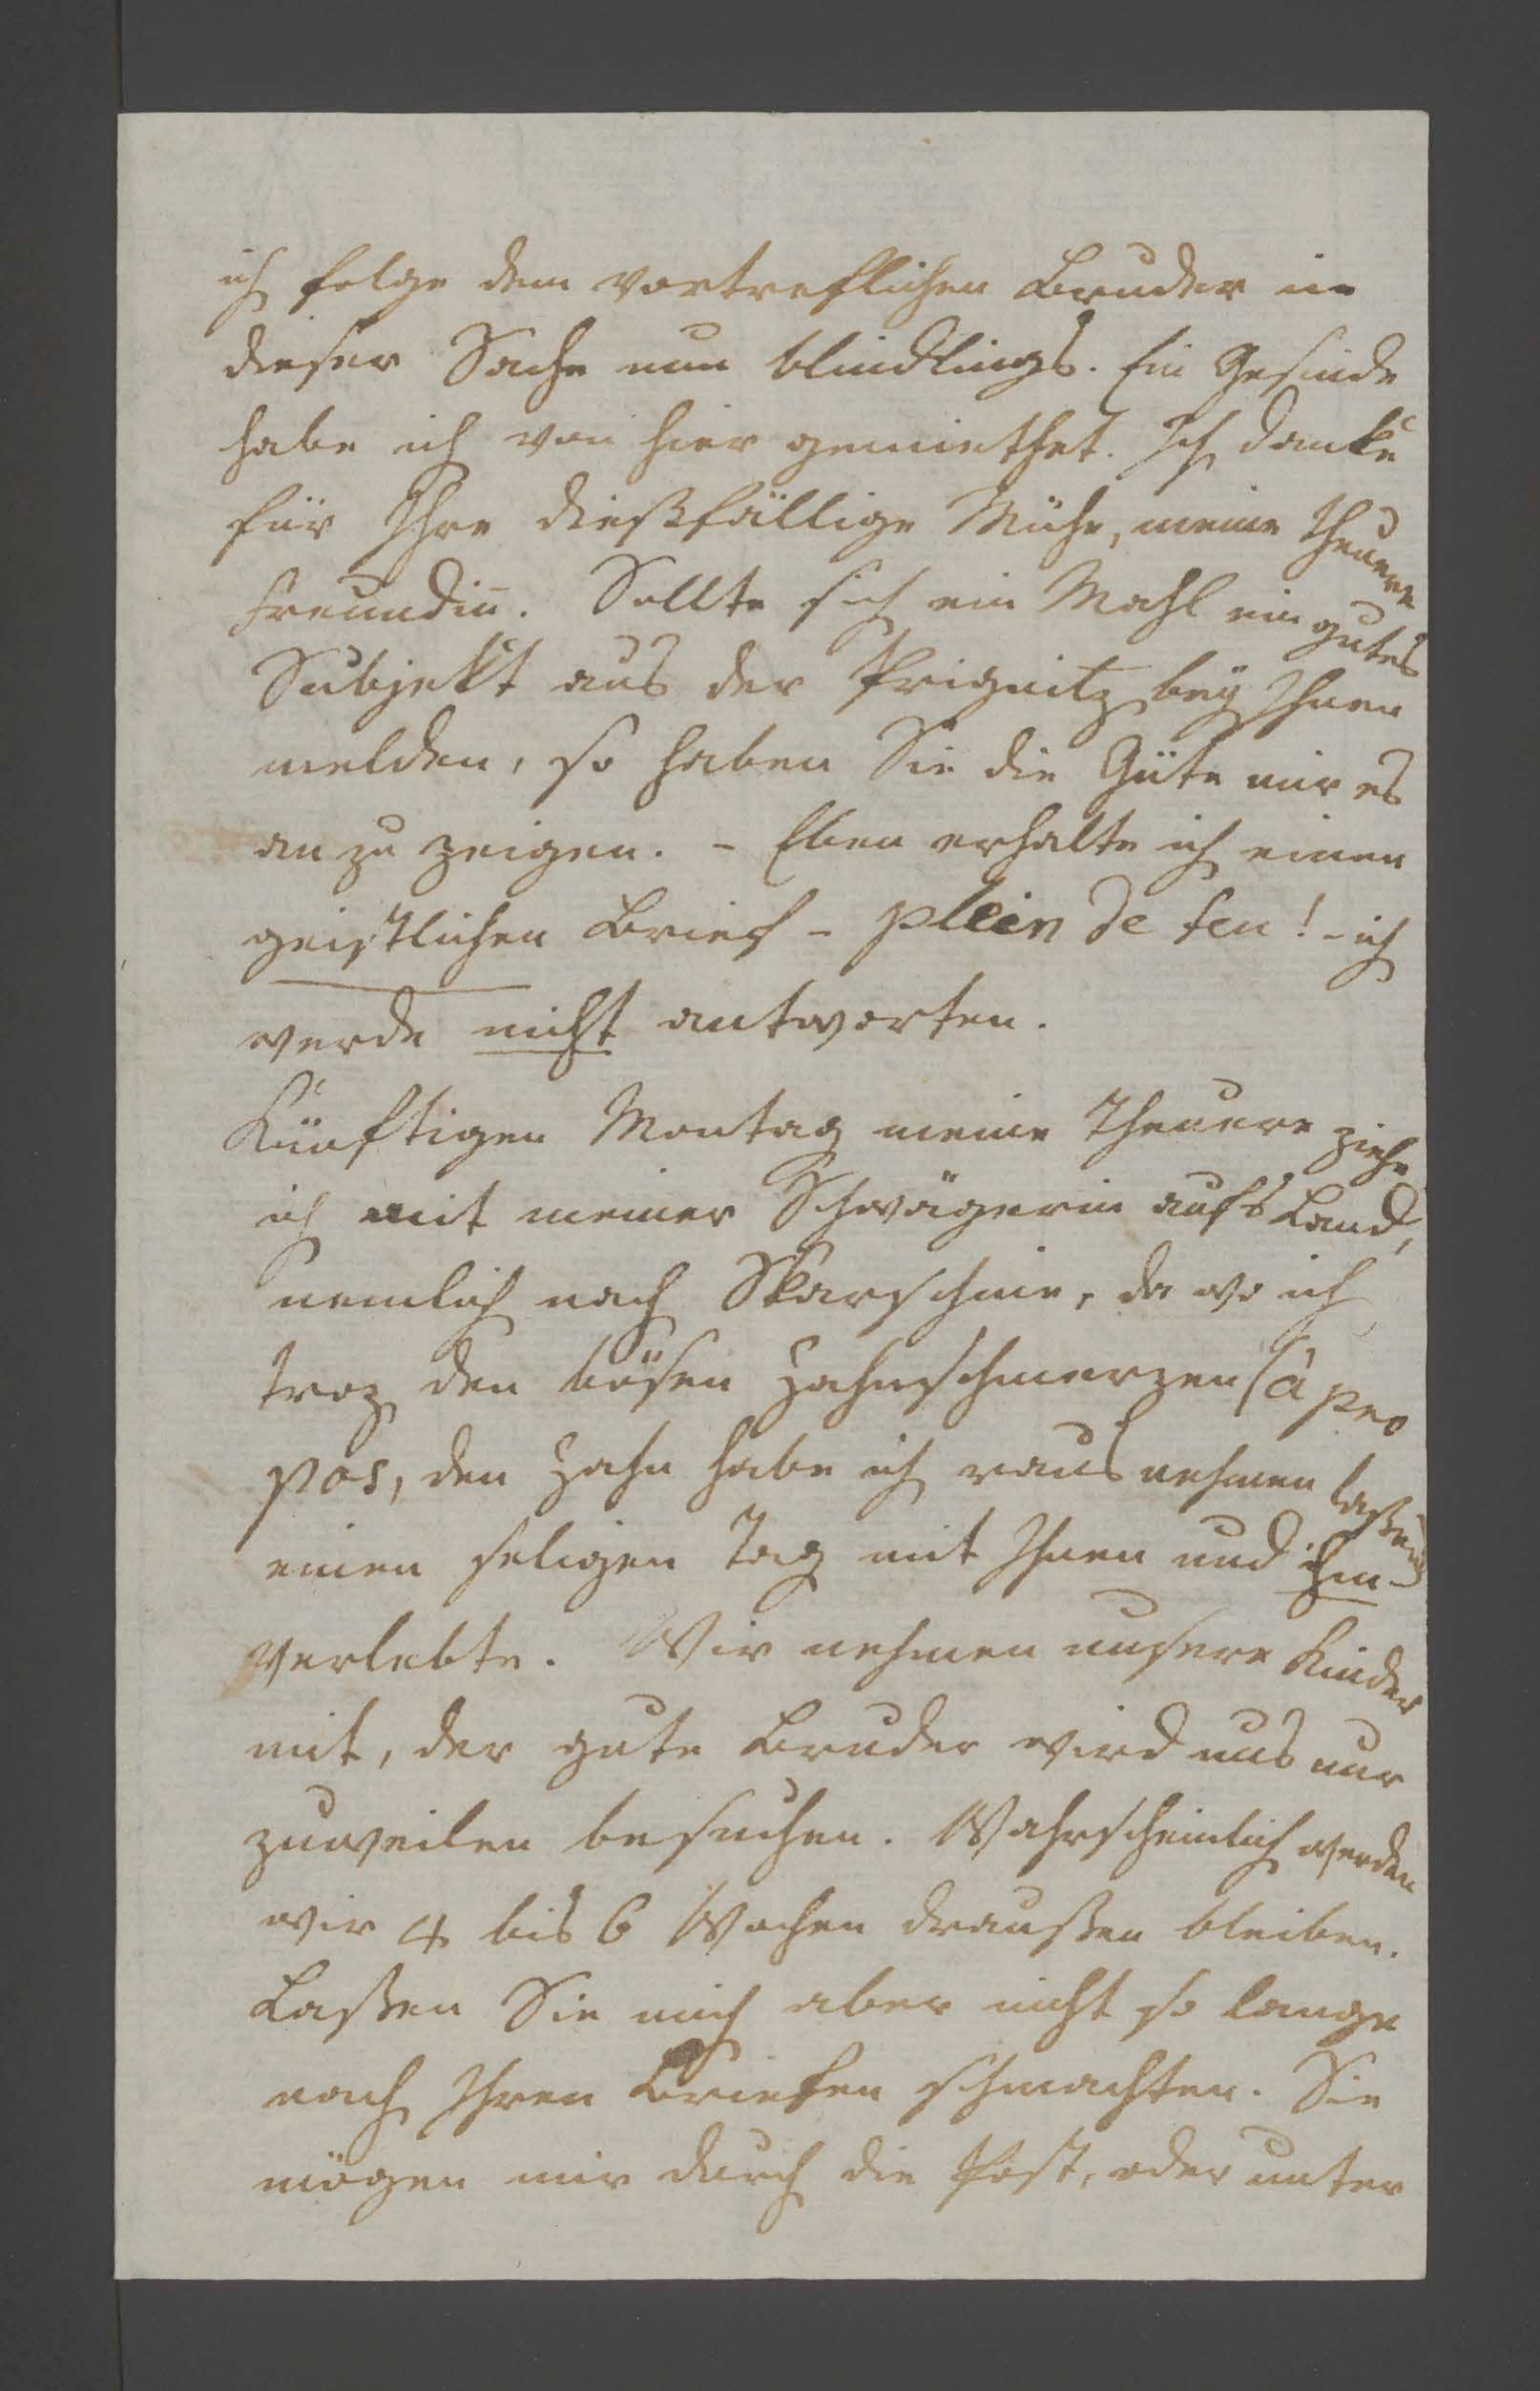 ich folge dem vortreflichen Bruder in
dieser Sache nun blindlings. Ein Gesinde
habe ich von hier gemiethet. Ich danke
für Ihre dießfällige Mühe, meine theuere
Freundin̄. Sollte sich ein Mahl ein gutes
Subjekt aus der Prignitz beÿ Ihnen
melden, so haben Sie die Güte mir es
an zu zeigen. – Eben erhalte ich einen
geistlichen Brief – plein de feu! – ich
werde nicht antworten.
Künftigen Montag meine Theuere ziehe
ich mit meiner Schwägerin aufs Land,
nemlich nach Skarschine, da wo ich
troz den bösen Zahnschmerzen (à pro
pos, den Zahn habe ich raus nehmen laßen)
einen seligen Tag mit Ihnen und ihm –
verlebte. Wir nehmen unsere Kinder
mit, der gute Bruder wird uns nur
zuweilen besuchen. Wahrscheinlich werden
wir 4 bis 6 Wochen draußen bleiben.
Laßen Sie mich aber nicht so lange
nach Ihren Briefen schmachten. Sie
mögen mir durch die Post, oder unter